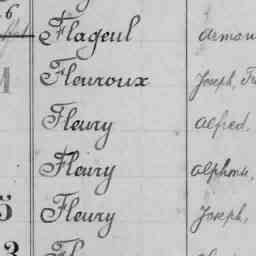 6
Flageul Armou
Fleuroux Joseph, Fr
Fleury Alfred.
Fleury Alphons,
5 Fleury Joseph,
3 Fl